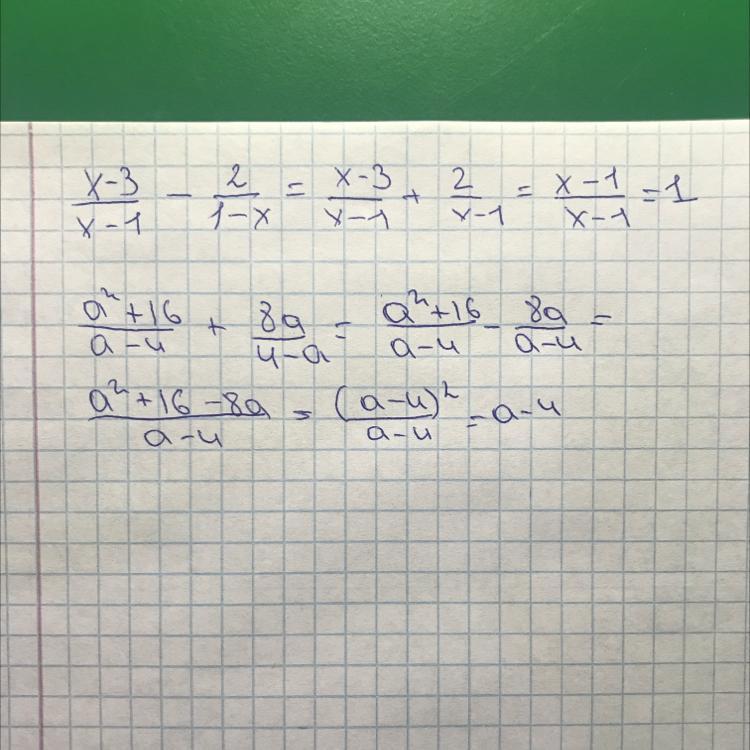 (x-3)/(x-1) - 2/(1-x) = (x-3)/(x-1) + 2/(x-1) = (x-1)/(x-1) = 1
(a²+16)/(a-4) + 8a/(4-a) = (a²+16)/(a-4) - 8a/(a-4) =
(a²+16-8a)/(a-4) = (a-4)²/(a-4) = a-4